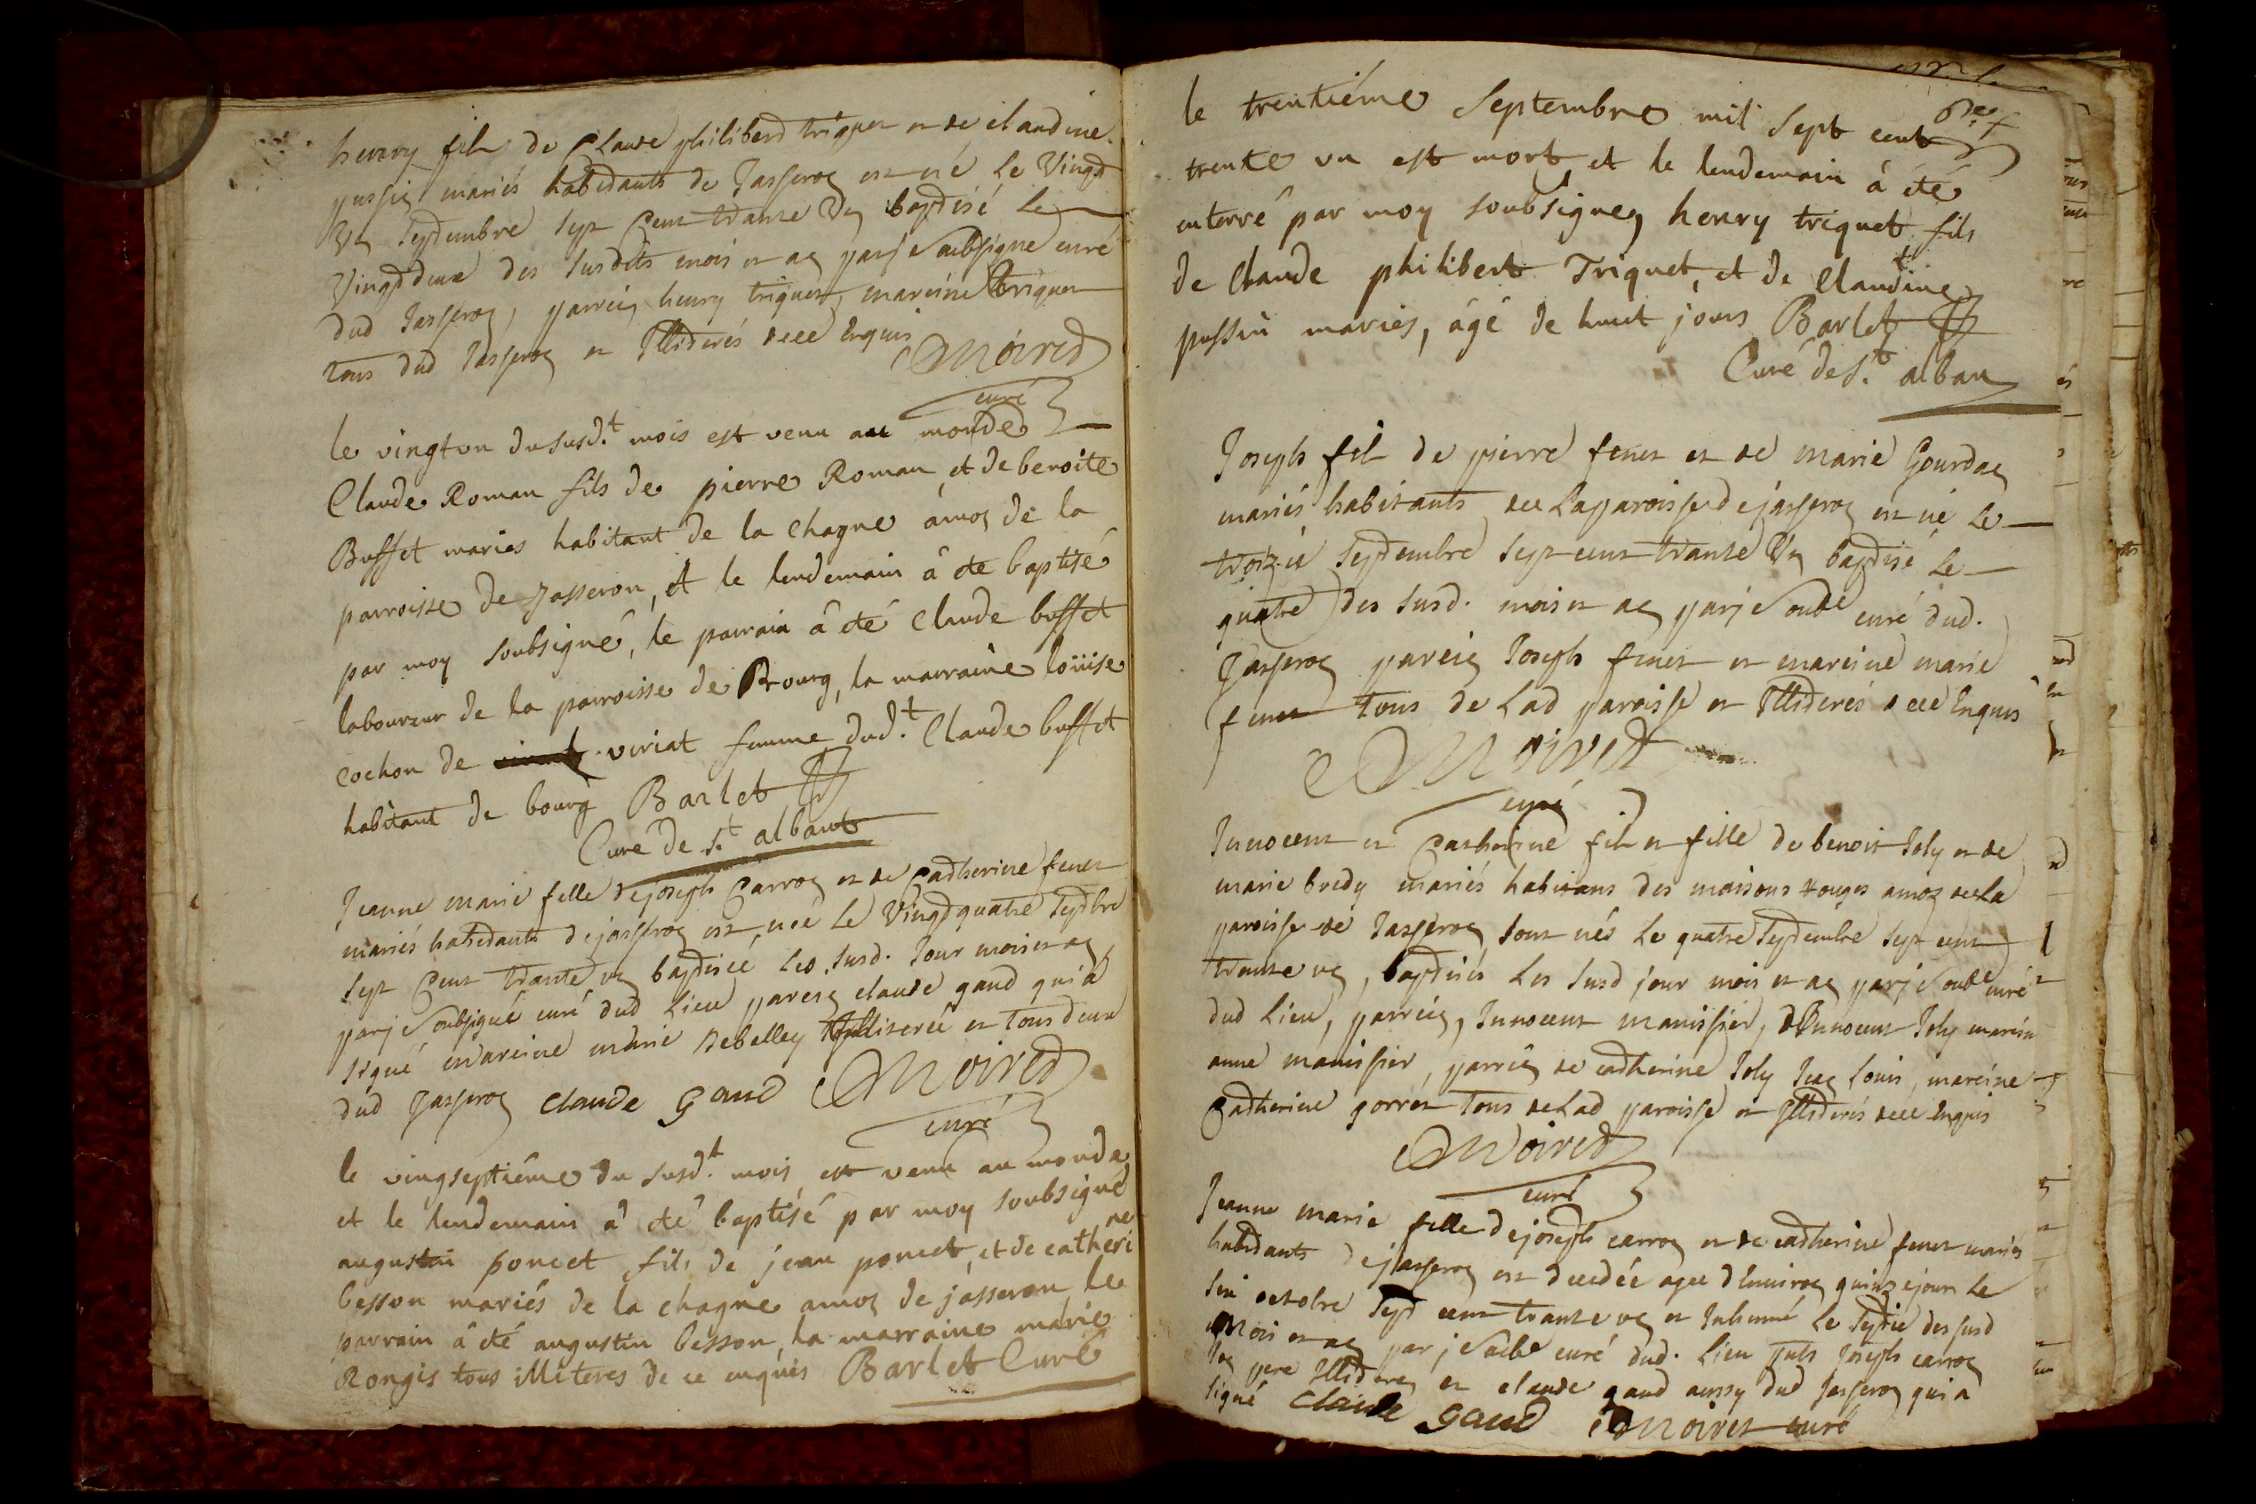 henry fils de Claude philiberd triquet et de claudine
pussin mariés habidants de Jasseron est né le Vingd
Un Sepdembre Sept Cent trante Un bapdisé le
Vingddeux des Susdits mois et an par je Soubsigné curé
dud Jasseron, parrein henry triquet, mareine triquet
tous dud Jasseron et Illiderés de ce Enquis
Moired
curé
le vingtun du susd.t mois est venu au monde
Claude Roman fils de pierre Roman, et de benoite
Buffet mariés habitant de la Chagne âmoz de la
parroisse de Jasseron, et le lendemain â été baptisé
par moy soubsigné, le parrain â été Claude buffet
laboureur de la parroisse de Bourg, la marraine loüise
cochon de viriat femme dud.t Claude buffet
habitant de bourg Barlet
Curé de S.t albant
Jeanne marie fille de joseph Carron et de Cadherine fenet
mariés habidants de jasseron est née le Vingdquatre Sepdbre
Sept Cent trante un bapdisée les susd. Jour mois et an
par je soubsigné curé dud lieu parein claude gaud qui a
signé mareine marie debelley Illiterée et tous deux
dud Jasseron claude gaud Moired
curé
le vingseptiême du susd.t mois est venu au monde
et le lendemain â été baptisé par moy soubsigné
augustin poncet fils de jean poncet, et de catherine
besson mariés de la chagne amoz de jasseron le
parrain â été augustin besson, la marraine marie
Rongis tous illiteres de ce enquis Barlet Curé
le trentiéme Septembre mil sept cent
trente un est mort, et le lendemain â été
enterré par moy soubsigné henry triquet fils
de Claude philibert Triquet, et de Claudine
pussin mariés, âgé de huit jours Barlet
Curé de S.t alban
Joseph fils de pierre fenet et de marie Gourdan
mariés habitants de la paroisse de jasseron est né le
troizie Sepdembre Sept cent trante Un bapdisé le
quatre des susd. mois et an par je soub.e curé dud.
Jasseron parein Joseph fenet et mareine marie
fenet tous de Lad paroisse et Illiderés de ce Enquis
Moired
curé
Innocent et Catherine fils et fille de benoit Joly et de
marie bredy mariés habitans des maisons rouges amoz de la
paroisse de Jasseron, sont nés le quatre Sepdembre Sept cent
trante un, bapdisés les susd jour mois et an par je soub.e curé
dud lieu, parrein, Innocent manissier, d'Innocent Joly marein
anne manissier, parrein de cadherine Joly Jean Louis, mareine
Cadherine gorret tous de Lad paroisse et Illiderés de ce Enquis
Moired
curé
Jeanne marie fille de joseph carron et de cadherine fenet mariés
habidants de jasseron est decedée agee d'Enuiron quinze jours le
six octobre Sepd cent trante un et Inhumé le Sepdie des susd
mois et an par je soub.e curé dud. lieu puts Joseph carron
son pere Illideré et claude gaud aussy dud Jasseron qui a
signé Claude gaud Moiret curé